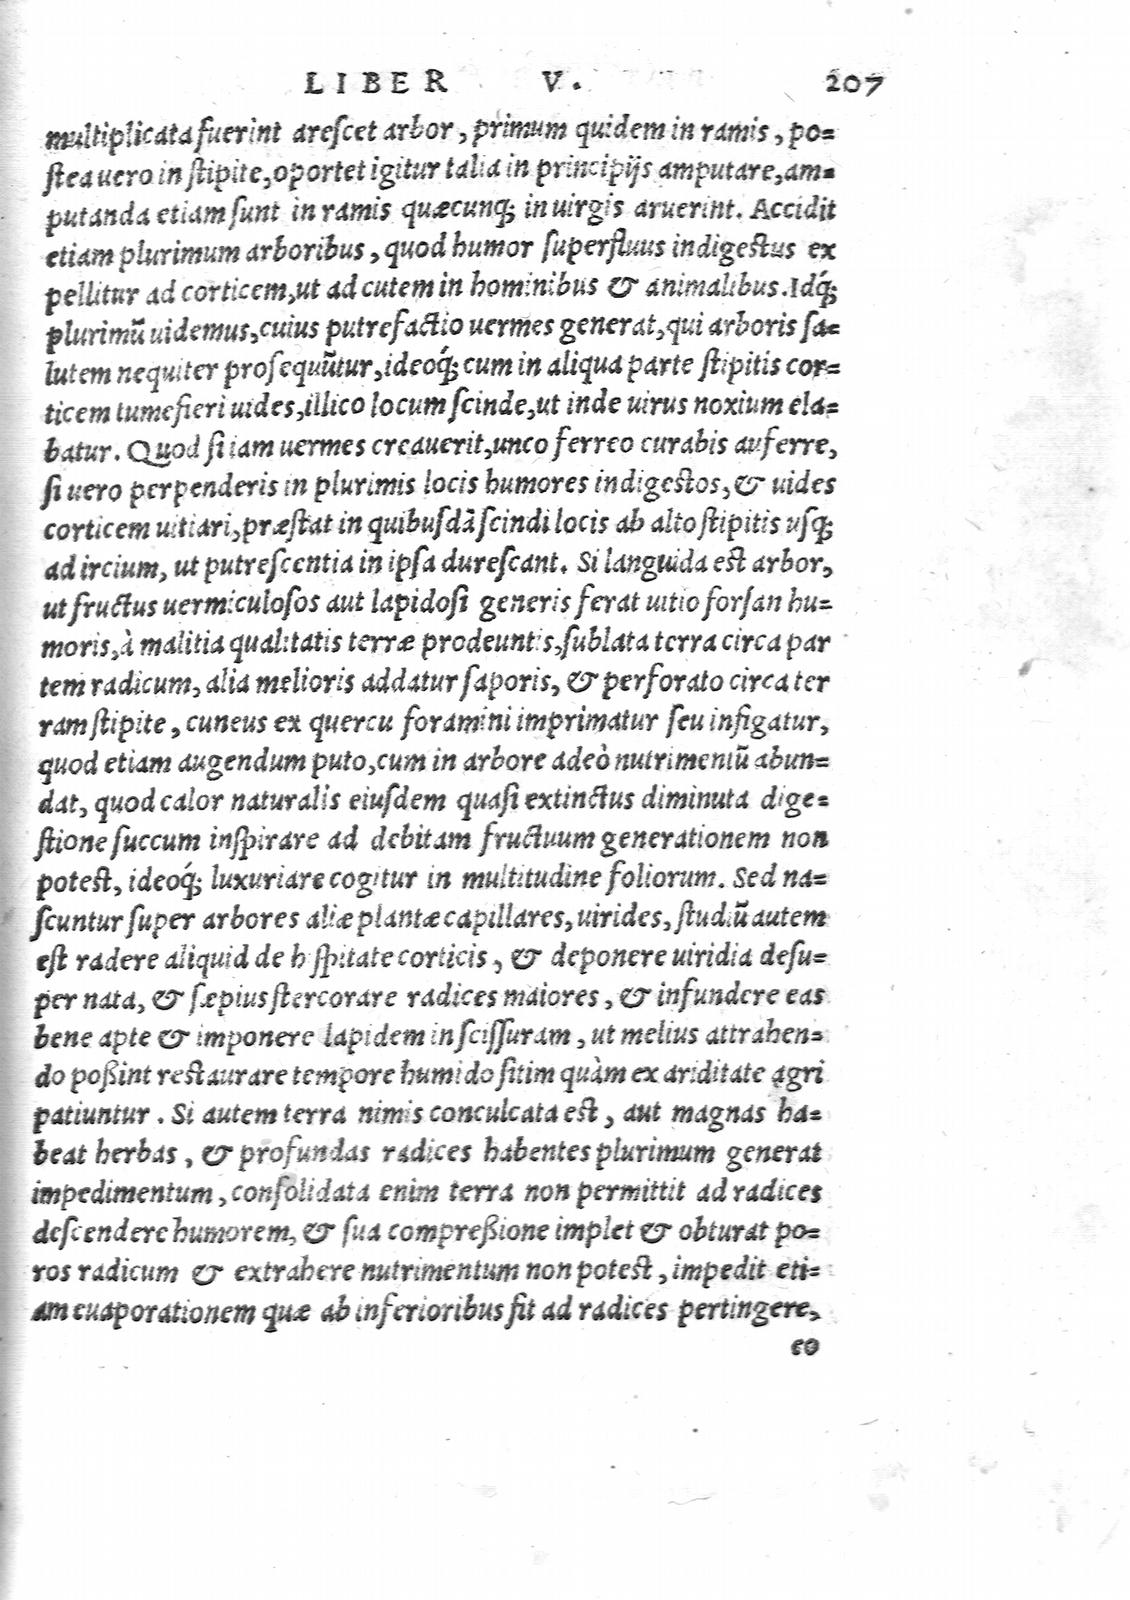 LIBER V. 207
multiplicata fuerint arescet arbor, primum quidem in ramis, po=
stea uero in stipite, oportet igitur talia in principijs amputare, am=
putanda etiam sunt in ramis quæcunq; in uirgis aruerint. Accidit
etiam plurimum arboribus, quod humor superfluus indigestus ex
pellitur ad corticem, ut ad cutem in hominibus & animalibus. Idq́;
plurimũ uidemus, cuius putrefactio uermes generat, qui arboris sa=
lutem nequiter prosequũtur, ideoq́; cum in aliqua parte stipitis cor=
ticem tumefieri uides, illico locum scinde, ut inde uirus noxium ela=
batur. Quod si iam uermes creauerit, unco ferreo curabis auferre,
si uero perpenderis in plurimis locis humores indigestos, & uides
corticem uitiari, præstat in quibusdã scindi locis ab alto stipitis usq;
ad ircium, ut putrescentia in ipsa durescant. Si languida est arbor,
ut fructus uermiculosos aut lapidosi generis ferat uitio forsan hu=
moris, à malitia qualitatis terræ prodeuntis, sublata terra circa par
tem radicum, alia melioris addatur saporis, & perforato circa ter
ram stipite, cuneus ex quercu foramini imprimatur seu infigatur,
quod etiam augendum puto, cum in arbore adeò nutrimentũ abun=
dat, quod calor naturalis eiusdem quasi extinctus diminuta dige=
stione succum inspirare ad debitam fructuum generationem non
potest, ideoq́; luxuriare cogitur in multitudine foliorum. Sed na=
scuntur super arbores aliæ plantæ capillares, uirides, studiũ autem
est radere aliquid de hispitate corticis, & deponere uiridia desu=
per nata, & sæpius stercorare radices maiores, & infundere eas
bene apte & imponere lapidem in scissuram, ut melius attrahen=
do poßint restaurare tempore humido sitim quàm ex ariditate agri
patiuntur. Si autem terra nimis conculcata est, aut magnas ha=
beat herbas, & profundas radices habentes plurimum generat
impedimentum, consolidata enim terra non permittit ad radices
descendere humorem, & sua compreßione implet & obturat po=
ros radicum & extrahere nutrimentum non potest, impedit eti=
am euaporationem quæ ab inferioribus fit ad radices pertingere,
eo